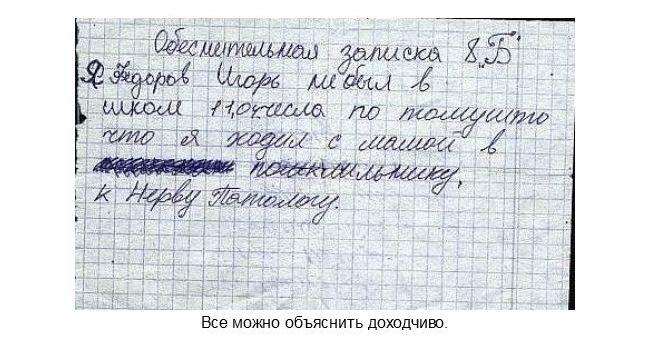 Обеснительная записка 8 „Б"
Я Федоров Игорь небыл в
школ 11,04 числа по томушто
что я ходил с мамой в
поликкильнику,
к Нерву Патологу.
Все можно объяснить доходчиво.